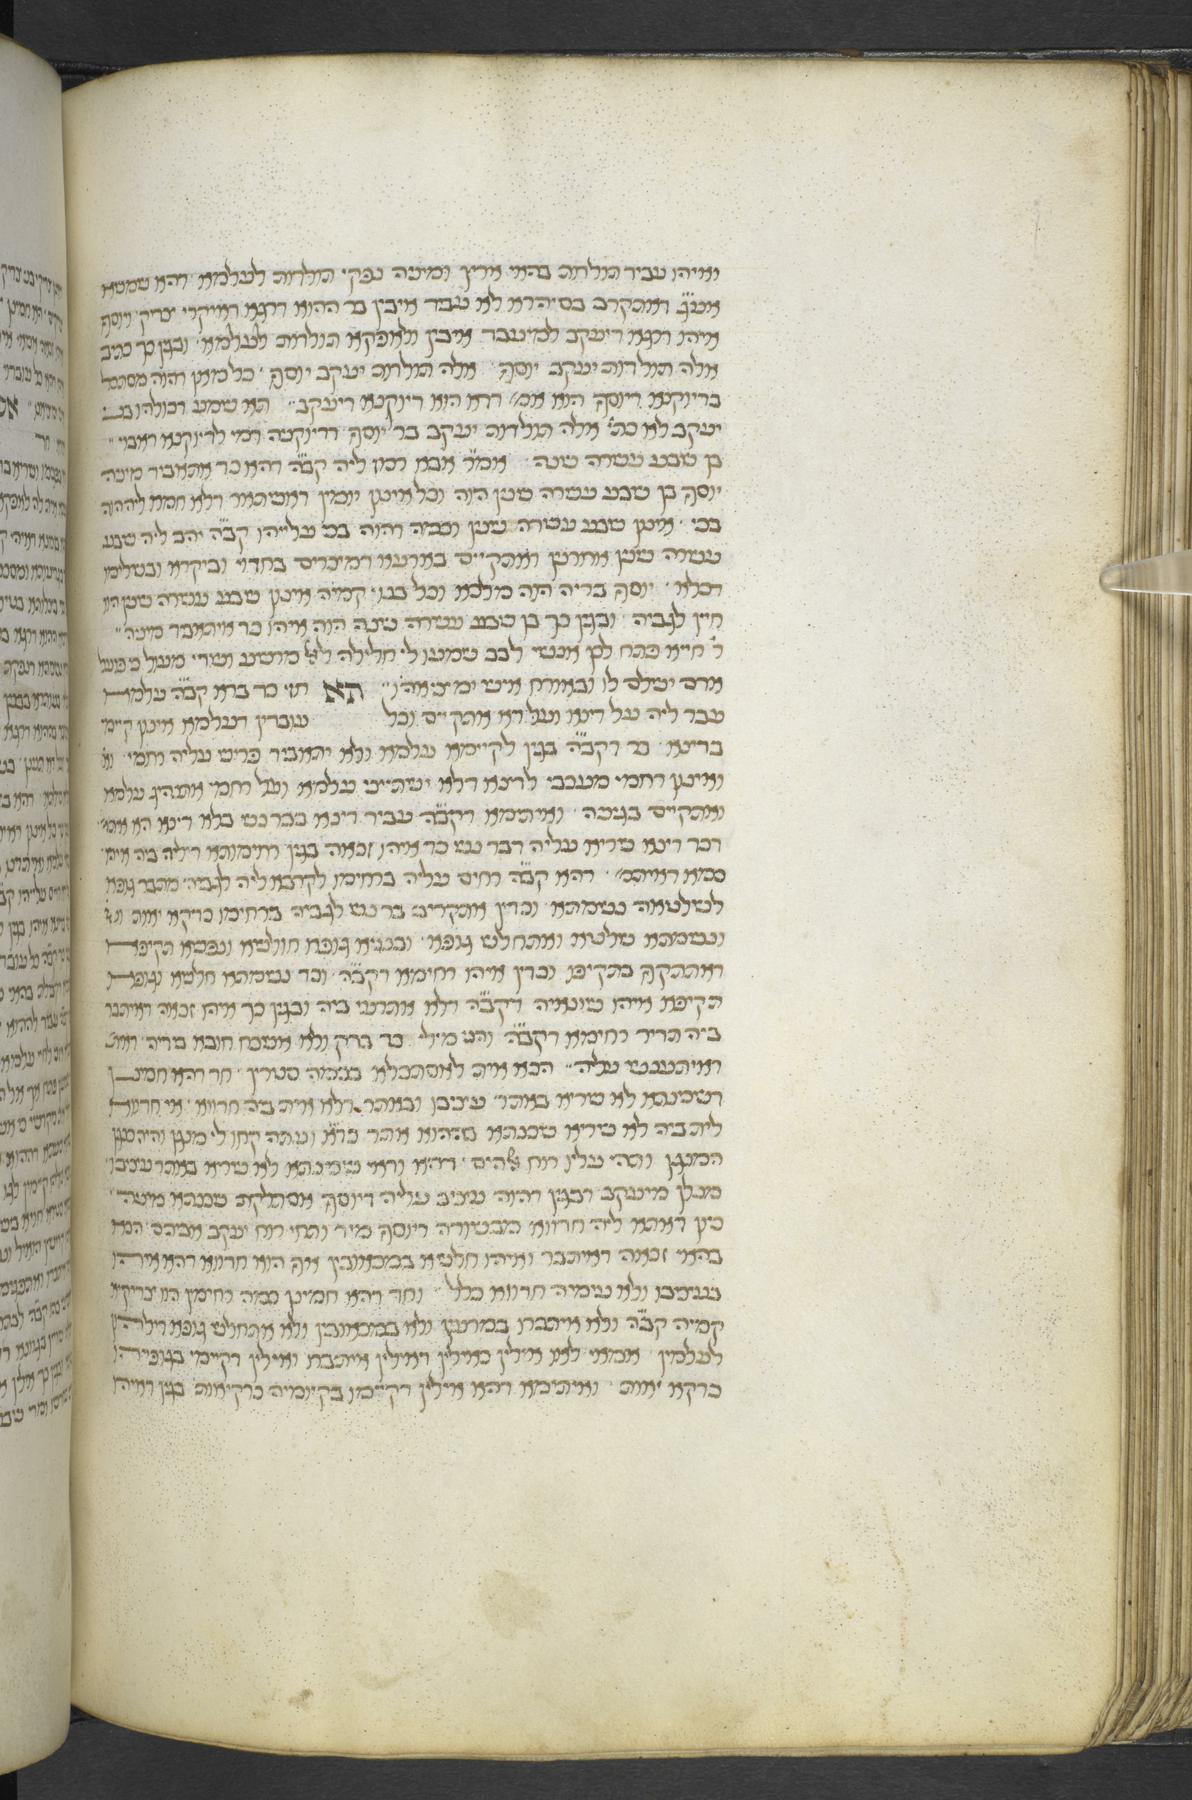 ואיהו עביד תולדות בהאי ארץ ומיניה נפקי תולדות לעלמא דהא שמשא
אע״ג דאתקריב בסיהרא לא עביד איבין בר ההוא דרגא דאיקרי צדיק ויוסף
איהו דרגא דיעקב למיעבד איבין ולאפקא תולדות לעלמא ובגין כך כתיב
אלה תולדות יעקב יוסף אלה תולדות יעקב יוסף כל מאן דהוה מסתכל
בדיוקנא דיוסף הוה אמ׳ דדא הוא דיוקנא דיעקב תא שמע דכולהו בני
יעקב לא כת׳ אלה תולדות יעקב בר יוסף דדיוקניה דמי לדיוקנא דאבוי
בן שבע עשרה שנה אמ״ר אבא רמז ליה קב״ה דהא כד אתאביד מיניה
יוסף בן שבע עשרה שנין הוה וכל אינון יומין דאשתאר דלא חמא ליה הוה
בכי אינון שבע עשרה שנין וכמה דהוה בכי עלייהו קב״ה יהב ליה שבע
עשרה שנין אחרנין דאתקיים בארעא דמצרים בחדו וביקרא ובשלימו
דכלא יוסף בריה הוה מלכא וכל בנוי קמיה אינון שבע עשרה שנין הוו
חיין לגביה ובגין כך בן שבע עשרה שנה הוה איהו כד איתאביד מיניה
ר׳ חייא פתח לכן אנשי לבב שמעו לי חלילה לאל מרשע ושדי מעול כי פועל
אדם ישלם לו ובאורח איש ימציאהו תא חזי כד ברא קב״ה עלמא
עבד ליה על דינא ועל דא אתקיים וכל עובדין דעלמא אינון קיימי
בדינא בר דקב״ה בגין לקיימא עלמא ולא יתאביד פריש עליה רחמי
ואינון רחמי מעכבי לדינא דלא ישתיצי עלמא ועל רחמי אתנהיג עלמא
ואתקיים בגיניה ואיתימא דקב״ה עביד דינא בבר נש בלא דינא הא
דכד דינא שריא עליה דבר נש כד איהו זכאה בגין רחימותא דיליה ביה
כמא דאיתמ׳ דהא קב״ה רחים עליה ברחימו לקרבא ליה לגביה מתבר גופא
לשלטאה נשמתא וכדין אתקריב בר נש לגביה ברחימו כדקא יאות
ונשמתא שלטא ואתחלש גופא ובעיא גופא חולשא ונפשא תקיפא
דאתתקף בתקיפו וכדין איהו רחימא דקב״ה וכד נשמתא חלשא וגופא
תקיפא איהו שונאיה דקב״ה דלא אתרעי ביה ובגין כך איהו זכאה דאיתבר
ביה תדיר רחימא דקב״ה והני מילי כד בדק ולא אשכח חובא בידיה
דאיתענש עליה הכא אית לאסתכלא בכמה סטרין חד דהא חמינן
דשכינתא לא שריא באתר עציבו ובאתר דלא אית ביה חדווא אי חדווא
לית ביה לא שריא שכינתא בההוא אתר כד״א ועתה קחו לי מנגן והיה כנגן
המנגן ותהי עליו רוח אלהים דהא ודאי שכינתא לא שריא באתר עציבו
מנלן מיעקב דבגין דהוה עציב עליה דיוסף אסתלקת שכינתא מיניה
כיון דאתא ליה חדווא מבשורה דיוסף מיד ותחי רוח יעקב אביהם הכא
בהאי זכאה דאיתבר ואיהו חלשא במכאובין אף הוא חדווא דהא איהו
בעציבו ולא עימיה חדווא כלל וחד דהא חמינן כמה רחימין הוו צדיקיא
קמיה קב״ה ולא איתברו במרעין ולא במכאובין ולא אתחלש גופא דילהון
לעלמין אמאי לאו אילין כאילין דאילין איתברו ואילין דקיימי בגופייהו
כדקא יאות ואיתימא דהא אילין דקיימו בקיומייהו כדקיאות בגין דאיהו